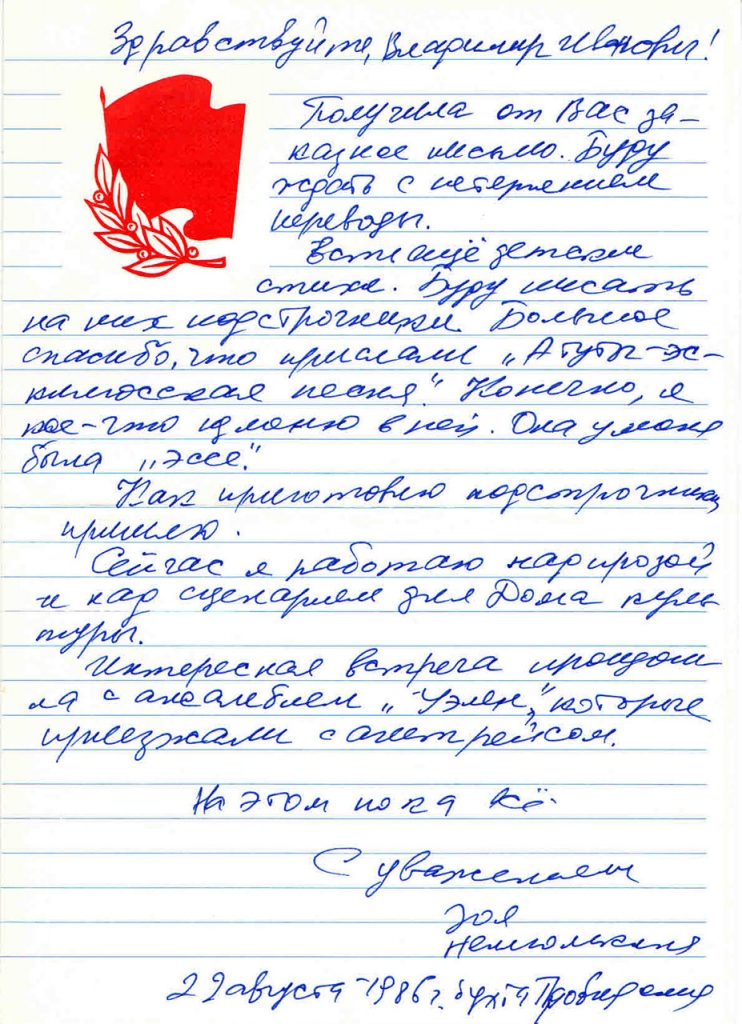 Здравствуйте, Владимир Иванович!
Получила от Вас за-
казное письмо. Буду
ждать с нетерпением
переводы.
Есть ещё детские
стихи. Буду писать
на них подстрочники. Большое
спасибо, что прислали „Атуты-эс-
кимосская песня". Конечно, я
кое-что изменю в ней. Она у меня
была „эссе".
Как приготовлю подстрочники,
пришлю.
Сейчас я работаю над прозой
и над сценарием для Дома куль
туры.
Интересная встреча произош
ла с ансамблем „Уэлен", которые
приезжали с агитрейсом.
На этом пока всё.
С уважением
Зоя
Ненлюмкина
22 августа-1986 г. бухта Провидения